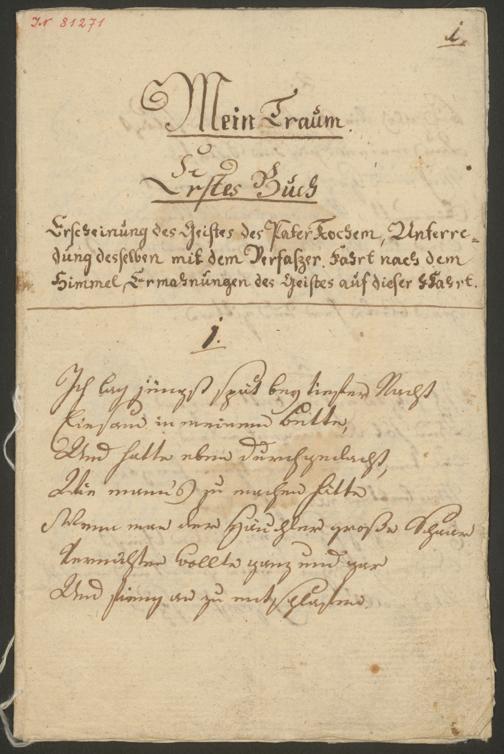 I.N 81271
1.
Mein Traum.
Erstes Buch
Erscheinung des Geistes des Pater Kochem, Unterre=
dung desselben mit dem Verfaszer. Fahrt nach dem
Himmel, Ermahnungen des Geistes auf dieser Fahrt.
1.
Ich lag jüngst spät bey tiefer Nacht
Einsam in meinem Bette,
Und hatte eben durchgedacht,
Wie mans zu machen hätte
Wenn man der Häuchler große Schaar
Vernichten wollte ganz und gar
Und fieng an zu entschlafen.